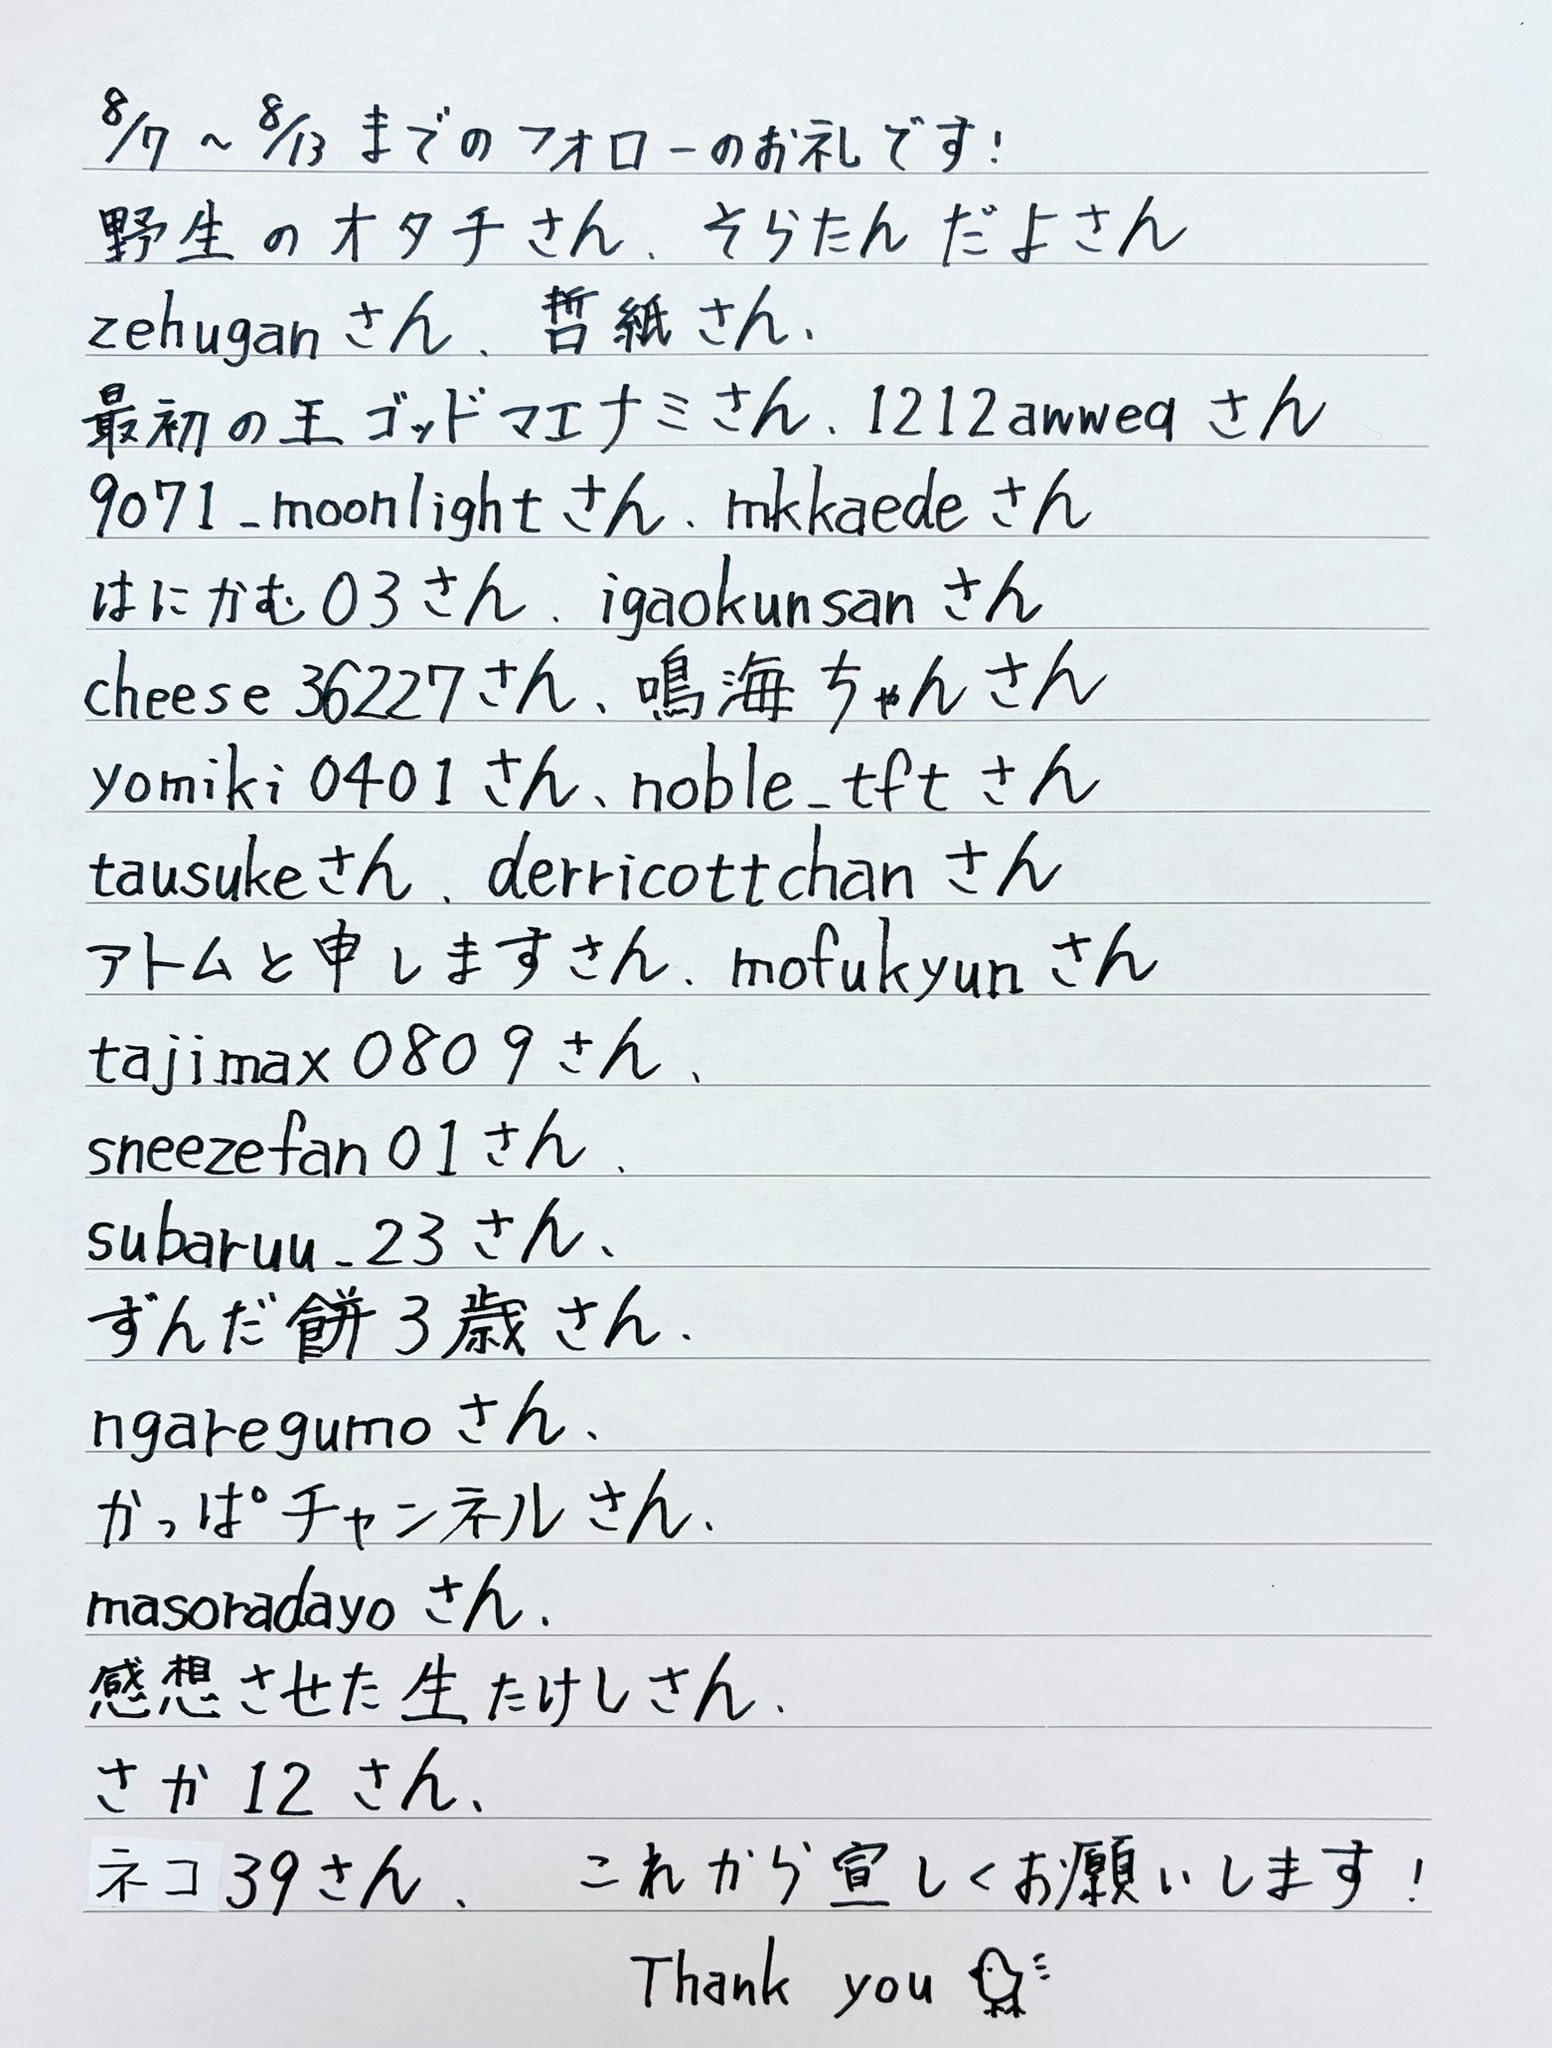 8/7～8/13までのフォローのお礼です!
野生のオタチさん、そらたんだよさん
zehuganさん、哲紙さん、
最初の王ゴッドマエナミさん、1212awweqさん
9071_moonlightさん、mkkaedeさん
はにかむ03さん、igaokunsanさん
cheese36227さん、鳴海ちゃんさん
yomiki0401さん、noble_tftさん
tausukeさん、derricottchanさん
アトムと申しますさん、mofukyunさん
tajimax0809さん、
sneezefan01さん、
subaruu_23さん、
ずんだ餅3歳さん、
ngaregumoさん、
かっぱチャンネルさん、
masoradayoさん、
感想させた生たけしさん、
さか12さん、
ネコ39さん、 これから宜しくお願いします!
Thank you